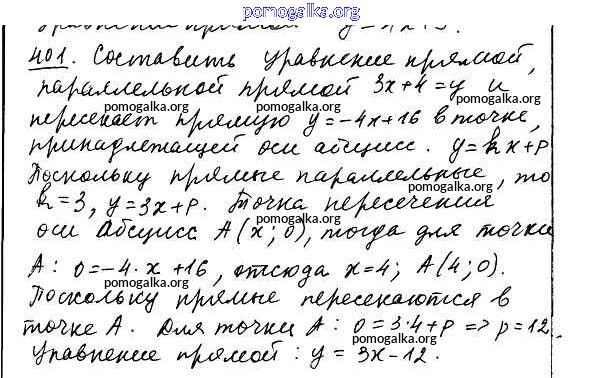 pomogalka.org
уравнение прямой y=4x+3.
401. Составить уравнение прямой,
параллельной прямой 3x+4=y и
pomogalka.org pomogalka.org pomogalka.org
пересекает прямую y=-4x+16 в точке,
принадлежащей оси абсцисс. y=kx+p
pomogalka.org
Поскольку прямые параллельные, то
pomogalka.org pomogalka.org
k=3, y=3x+p. Точка пересечения
pomogalka.org
оси абсцисс A(x;0), тогда для точки
A: 0=-4·x+16, отсюда x=4; A(4;0).
pomogalka.org pomogalka.org
Поскольку прямые пересекаются в
точке A. Для точки A: 0=3·4+p=>p=12.
pomogalka.org pomogalka.org
Уравнение прямой: y=3x-12.